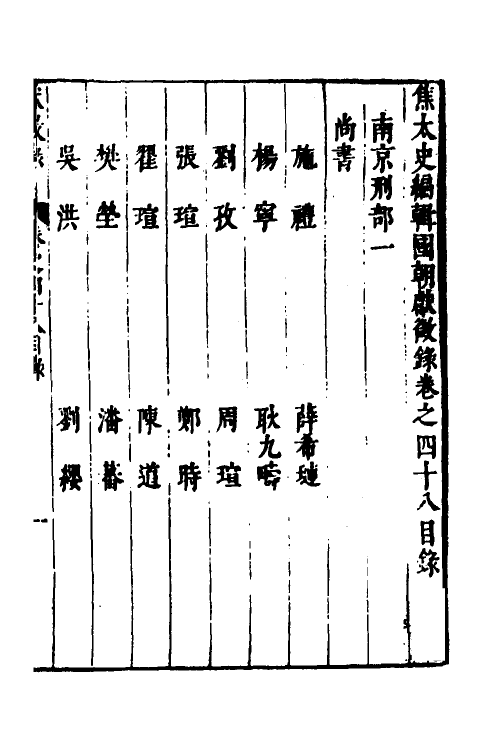 焦太史編輯國朝獻徵錄卷之四十八目錄
南京刑部一
尚書
施禮 薛希璉
楊寧 耿九疇
劉孜 周瑄
張瑄 鄭時
翟瑄 陳道
樊瑩 潘蕃
吳洪 劉纓